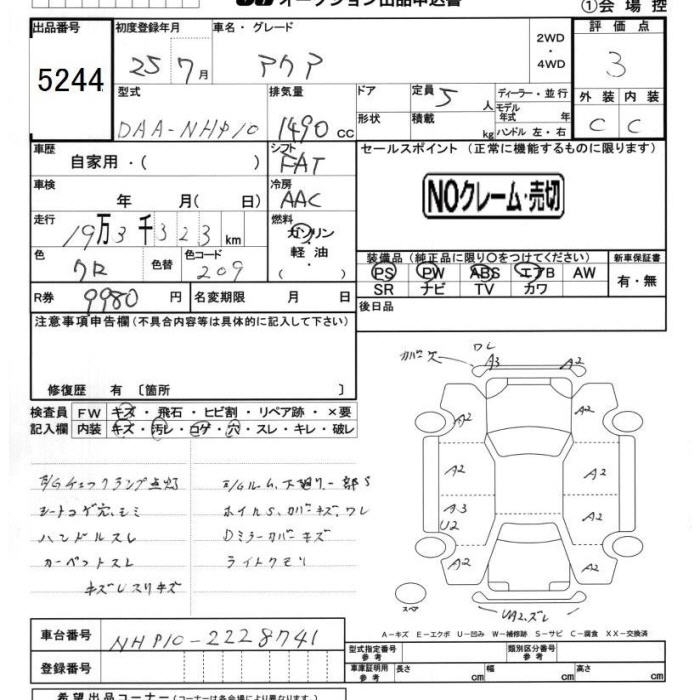 オークション出品申込書
①会場控
出品番号 5244
初度登録年月 25 7月
車名・グレード アクア
2WD
・
4WD
評価点 3
外装 内装
C C
型式 DAA-NHP10
排気量 1490cc
ドア
形状
定員 5人
積載 kg
ディーラー・並行
モデル年式 年
ハンドル 左・右
車歴 自家用・( )
シフト FAT
セールスポイント (正常に機能するものに限ります)
NOクレーム・売切
車検 年 月( 日)
冷房 AAC
走行 19万3千323km
燃料 ガソリン・軽油・( )
色 クロ
色替
色コード 209
装備品 (純正品に限り○をつけてください)
PS PW ABS エアB AW
SR ナビ TV カワ
新車保証書
有・無
R券 9980円
名変期限 月 日
後日品
注意事項申告欄(不具合内容等は具体的に記入して下さい)
修復歴 有〔箇所 〕
検査員記入欄
FW キズ・飛石・ヒビ割・リペア跡・×要
内装 キズ・汚レ・コゲ・穴・スレ・キレ・破レ
E/Gチェックランプ点灯
シートコゲ穴、シミ
ハンドルスレ
カーペットスレ
キズレスリキズ
E/Gルーム、下廻り一部S
ホイルS、カバーキズ、ワレ
Dミラーカバーキズ
ライトクモリ
カバー欠
ワレ
A3
A2
A2
A2
A2
A2
A3
U2
A2
A2
A2
スペア
UA2、ズレ
A-キズ E-エクボ U-凹み W-補修跡 S-サビ C-腐食 XX-交換済
車台番号 NHP10-2228741
登録番号
型式指定番号 参考
類別区分番号 参考
車庫証明用 参考
長さ cm
幅 cm
高さ cm
希望出品コーナー(コーナーは各会場により異なります)